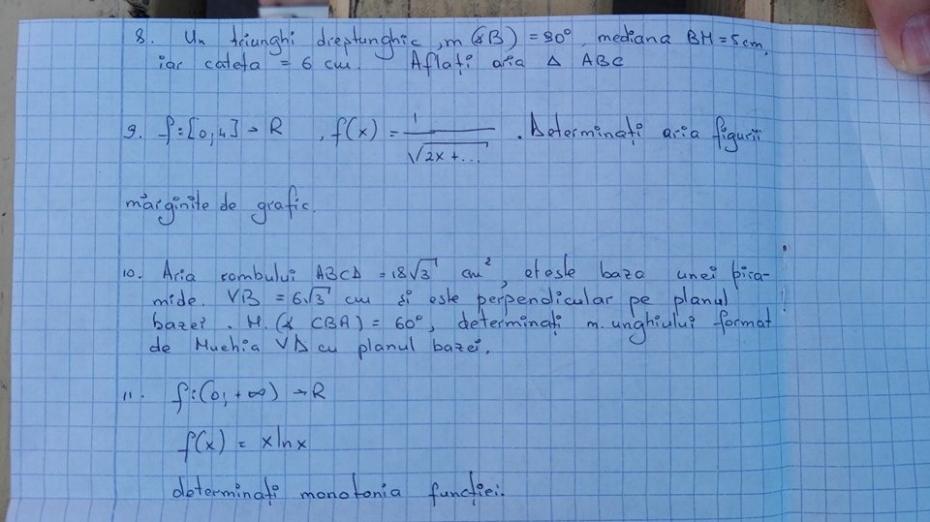 8. Un triunghi dreptunghic, m(∢B) = 90°, mediana BM = 5cm,
iar cateta = 6 cm. Aflați aria Δ ABC
9. f:[0,4] → R , f(x) = 1/√(2x+...) . Determinați aria figurii
mărginite de grafic.
10. Aria rombului ABCD = 18√3 cm², el este baza unei pira-
mide. VB = 6√3 cm și este perpendicular pe planul
bazei. M.(∢ CBA) = 60°, determinați m. unghiului format
de Muchia VD cu planul bazei.
11. f:(0,+∞) → R
f(x) = xlnx
determinați monotonia funcției.